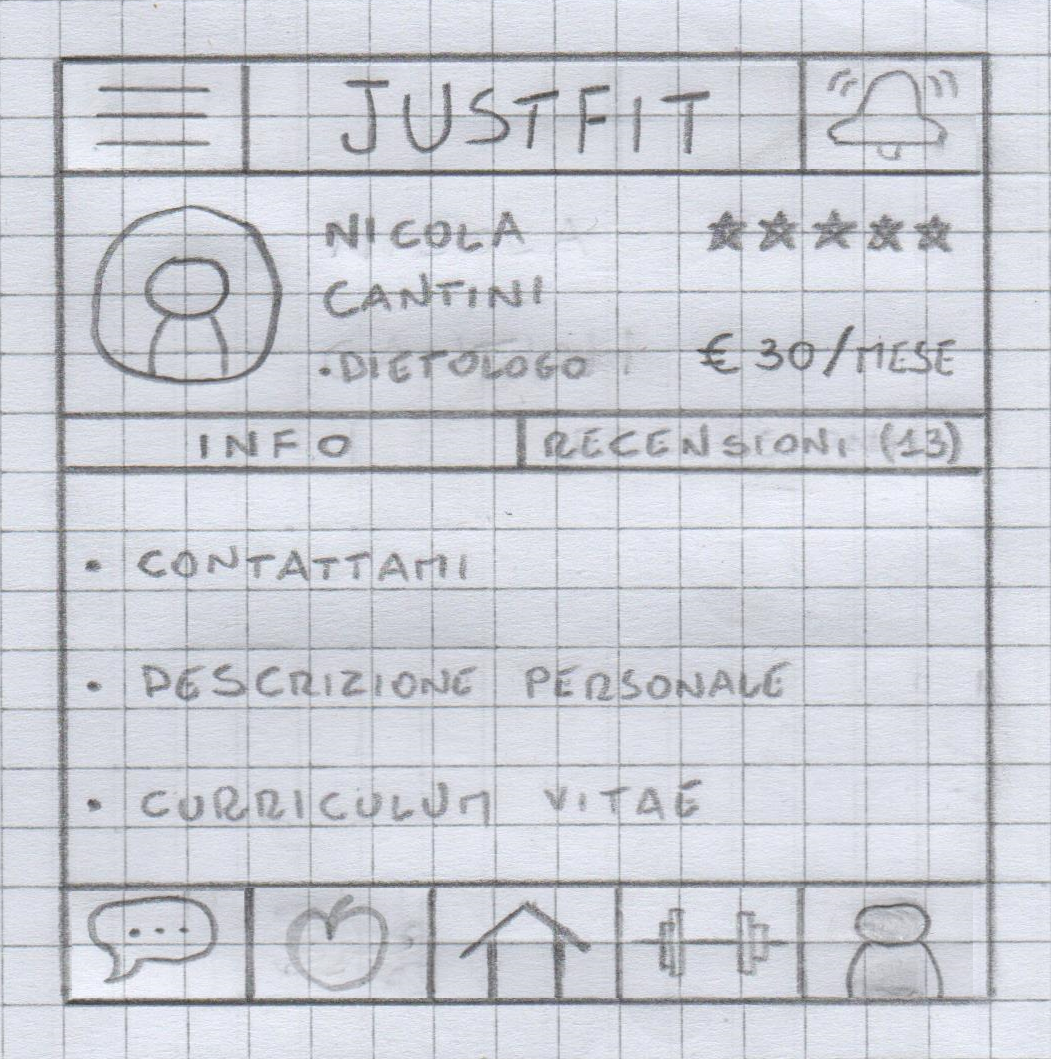 JUSTFIT
NICOLA
CANTINI
•DIETOLOGO
€ 30/MESE
INFO
RECENSIONI (13)
• CONTATTAMI
• DESCRIZIONE PERSONALE
• CURRICULUM VITAE